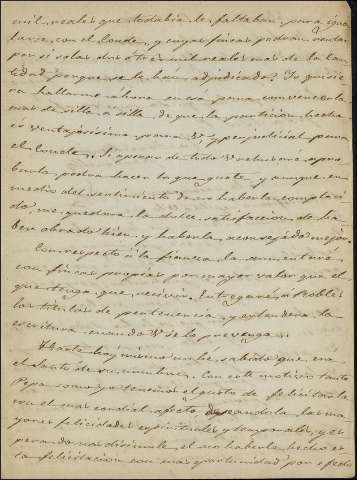 mil reales que todabia le faltaban para igua
larse con el Conde, y cuyas fincas podran rentar
por si solas dos ó tres mil reales mas de la can
tidad porque se le han adjudicado? Yo quisie
ra hallarme ahora en esa para convencerla
mas de silla a silla, de que la particion hecha
es ventajosisima para V. y perjudicial para
el Conde. Si apesar de todo V rehusare apro
barla podra hacer lo que guste, y aunque en
medio del sentimiento de no haberla complaci
do, me quedara la dulce satisfaccion de ha
ber obrado bien, y haberla aconsejado mejor.
Con respecto á la fianza la aumentaré
con fincas propias por mayor valor que el
que tenga que recivir. Entregaré á Robles
los titulos de pertenencia, y estendera la
escritura cuando V se lo prevenga.
Hasta hoy mismo no he sabido que era
el Santo de su nombre. Con este motivo tanto
Pepa como yo tenemos el gusto de felicitarla
con el mas cordial afecto deseandola las ma
yores felicidades espirituales y temporales, y es
perando nos disimule el no haberla hecho es
ta felicitacion con mas oportunidad por efecto